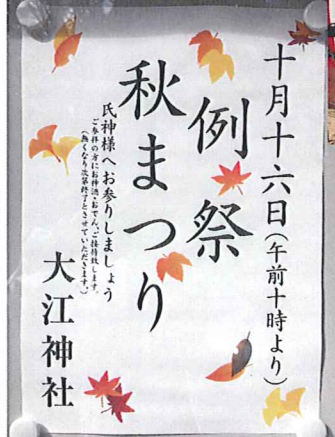 十月十六日(午前十時より)
例祭
秋まつり
氏神様へお参りしましょう
ご参拝の方にお神酒・おでん、ご接待致します。
(無くなり次第終了とさせていただきます。)
大江神社